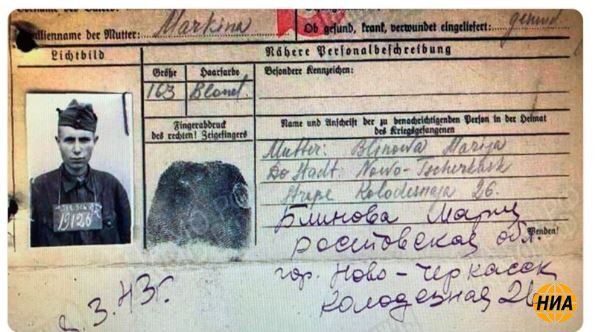 Familienname der Mutter: Markina
Ob gesund, krank, verwundet eingeliefert: gesund
Lichtbild
Nähere Personalbeschreibung
Größe
Haarfarbe
Besondere Kennzeichen:
163
Blond
Fingerabdruck
des rechten! Zeigefingers
Name und Anschrift der zu benachrichtigenden Person in der Heimat
des Kriegsgefangenen
Mutter: Blinowa Marija
Stadt: Nowo-Tscherkask
Kolodesnaja 26.
19126
Блинова Мария
Ростовская обл.
гор. Ново-Черкасск
Колодезная 26
3.43г.
НИА